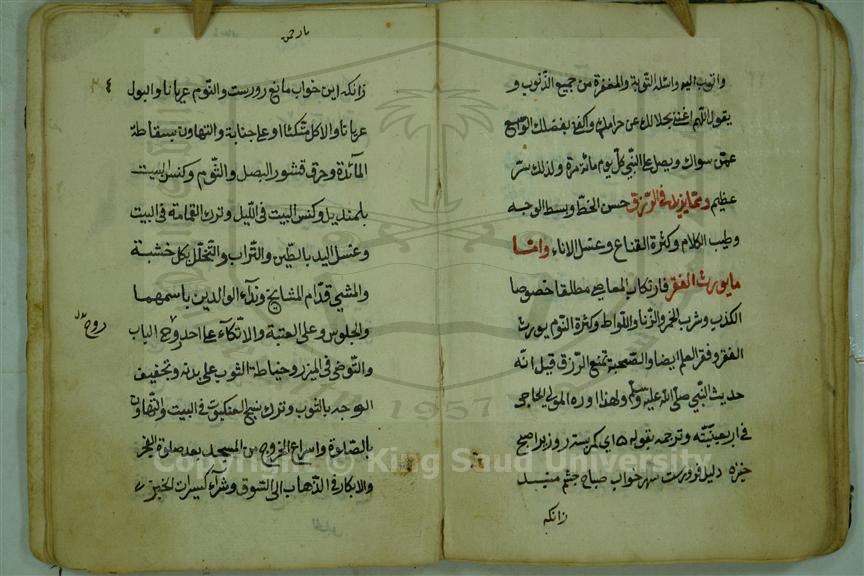 واتوب اليه واسئله التوبة والمغفرة من جميع الذنوب و
يقول اللهم اغنني بحلالك عن حرامك واكفني بفضلك الواسع
عمن سواك ويصل على النبي كل يوم مائة مرة ولذلك سر
عظيم ومما يزيد في الرزق حسن الخط وبسط الوجه
وطيب الكلام وكثرة القناع وغسل الاناء واما
ما يورث الفقر فارتكاب المعاصي مطلقا خصوصا
الكذب وشرب الخمر والزنا واللواط وكثرة النوم يورث
الفقر وفقر العلم ايضا والصبحة تمنع الرزق قيل انه
حديث النبي صلى الله عليه وسلم ولهذا اورده المولى الجامي
في اربعينيته وترجمه بقوله
دليل خواب صباح چشم مبند
زانكه
بارص
٤
زانكه اين خواب مانع روزيست والنوم عريانا والبول
عريانا والاكل متكئا او على جنابة والتهاون بسقاطة
المآئدة وحرق قشور البصل والثوم وكنس البيت
بلمنديل وكنس البيت في الليل وترك القمامة في البيت
وغسل اليد بالطين والتراب والتخلل بكل خشبة
والمشي قدام المشايخ وندآء الوالدين باسمهما
والجلوس على العتبة والاتكآء على احد زوج الباب
والتوضي في الميزر وخياطة الثوب على بدنه وتجفيف
الوجه بالثوب وترك نسج العنكبوت في البيت والتهاون
بالصلوة واسراع الخروج من المسجد بعد صلوة الفجر
والابكار في الذهاب الى السوق وشرآء كسيرات الخبز
1957
Copyright © King Saud University